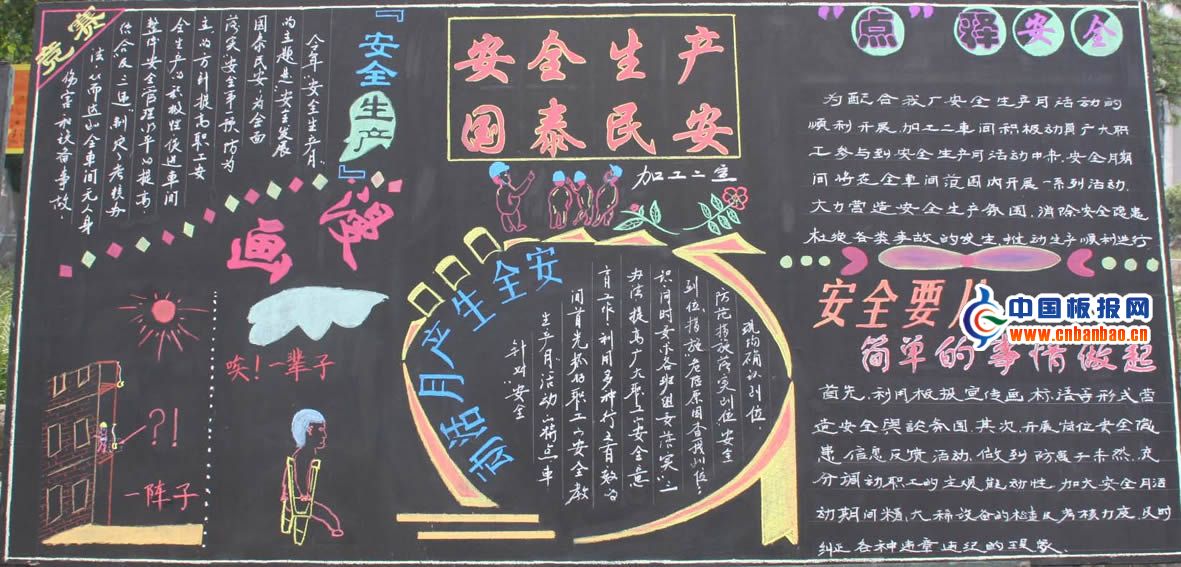 竞赛
『安全生产』
今年"安全生产月"
的主题是"安全发展
国泰民安"为全面
落实"安全第一预防为
主"的方针提高职工安
全生产的积极性促进车间
整体安全管理水平的提高,
伤害和设备事故.
安全生产
国泰民安
加工二车
"点"
择安全
为配合我厂安全生产月活动的
顺利开展,加工二车间积极动员广大职
工参与到安全生产月活动中来,安全月期
间将在全车间范围内开展一系列活动,
大力营造安全生产氛围,消除安全隐患
杜绝各类事故的发生,推动生产顺利进行
漫画
唉!一辈子
?!
一阵子
安全生产月活动
针对"安全
生产月"活动的特点车
间首先抓好职工的安全教
育工作,利用多种行之有效的
办法提高广大职工的安全意
识同时要求各班组要落实"三
到位"措施,危险原因查找到位,
防范措施落实到位,安全
现场确认到位.
安全要从
简单的事情做起
中国板报网
www.cnbanbao.cn
首先,利用板报宣传画,标语等形式营
造安全舆论氛围.其次,开展岗位安全隐
患信息反馈活动,做到防患于未然,充
分调动职工的主观能动性,加大安全月活
动期间精、大、稀设备的检查及考核力度,及时
纠正各种违章违纪的现象.